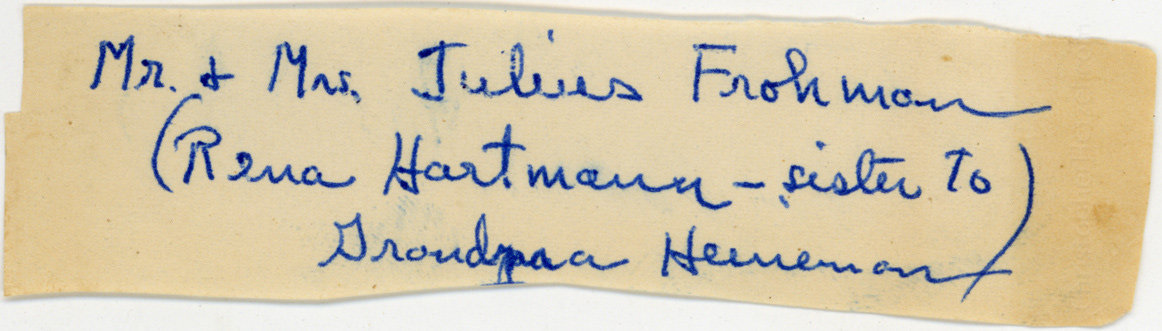 Mr. & Mrs. Julius Frohman
(Rena Hartmann - sister to)
Grandpaa Heineman